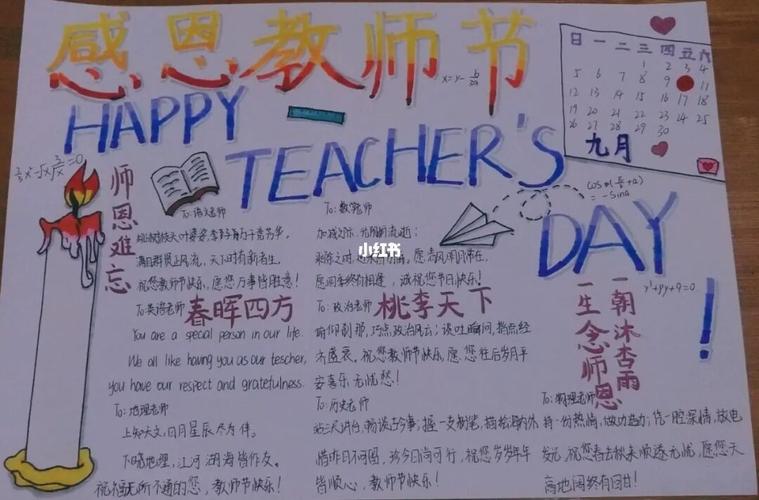 感恩教师节
HAPPY
TEACHER'S
DAY!
日 一 二 三 四 五 六
1 2 3 4
5 6 7 8 9 11
12 13 14 15 16 17 18
19 20 21 22 23 24 25
26 27 28 29 30
九月
师恩难忘
小红书
To: 语文老师
祝您教师节快乐,愿您万事皆胜意!
To: 数学老师
诚祝您节日快乐!
春晖四方
To: 英语老师
You are a special person in our life.
We all like having you as our teacher,
you have our respect and gratefulness.
桃李天下
To: 政治老师
祝您教师节快乐,愿您往后岁月平
安喜乐无忧愁!
一朝沐杏雨
一生念师恩
To: 地理老师
上知天文,日月星辰尽为伴。
下晓地理,江河湖海皆作友。
祝无所不通的您,教师节快乐!
To: 历史老师
惜昨日不可图,珍今日尚可行,祝您岁岁年年
皆顺心,教师节快乐!
To: 物理老师
持一份热情,做功启动;凭一腔深情,放电
发光,祝您春去秋来顺遂无忧,愿您天
高地阔终有回甘!